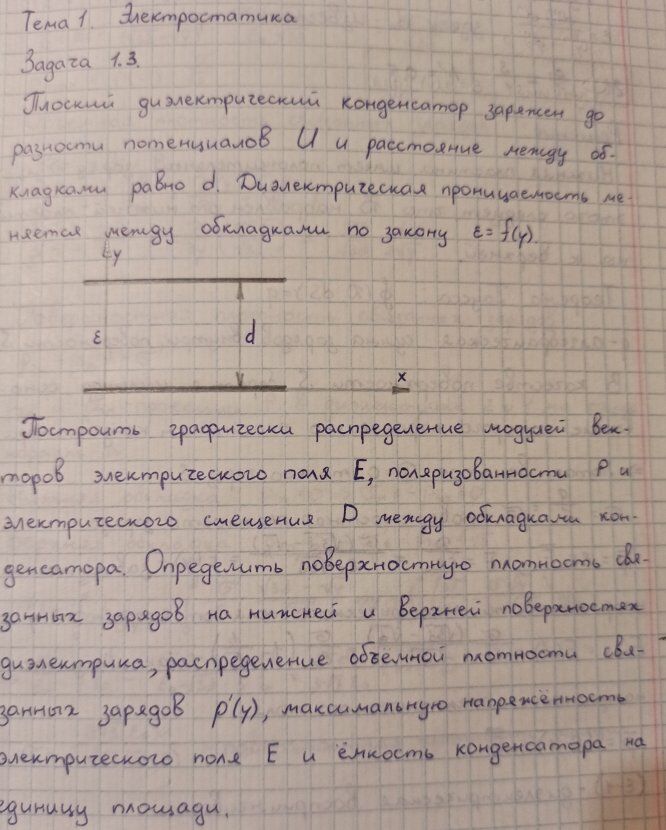 Тема 1. Электростатика
Задача 1.3.
Плоский диэлектрический конденсатор заряжен до
разности потенциалов U и расстояние между об-
кладками равно d. Диэлектрическая проницаемость ме-
няется между обкладками по закону ε = f(y).
y
ε
d
x
Построить графически распределение модулей век-
торов электрического поля E, поляризованности P и
электрического смещения D между обкладками кон-
денсатора. Определить поверхностную плотность свя-
занных зарядов на нижней и верхней поверхностях
диэлектрика, распределение объёмной плотности свя-
занных зарядов ρ'(y), максимальную напряжённость
электрического поля E и ёмкость конденсатора на
единицу площади.